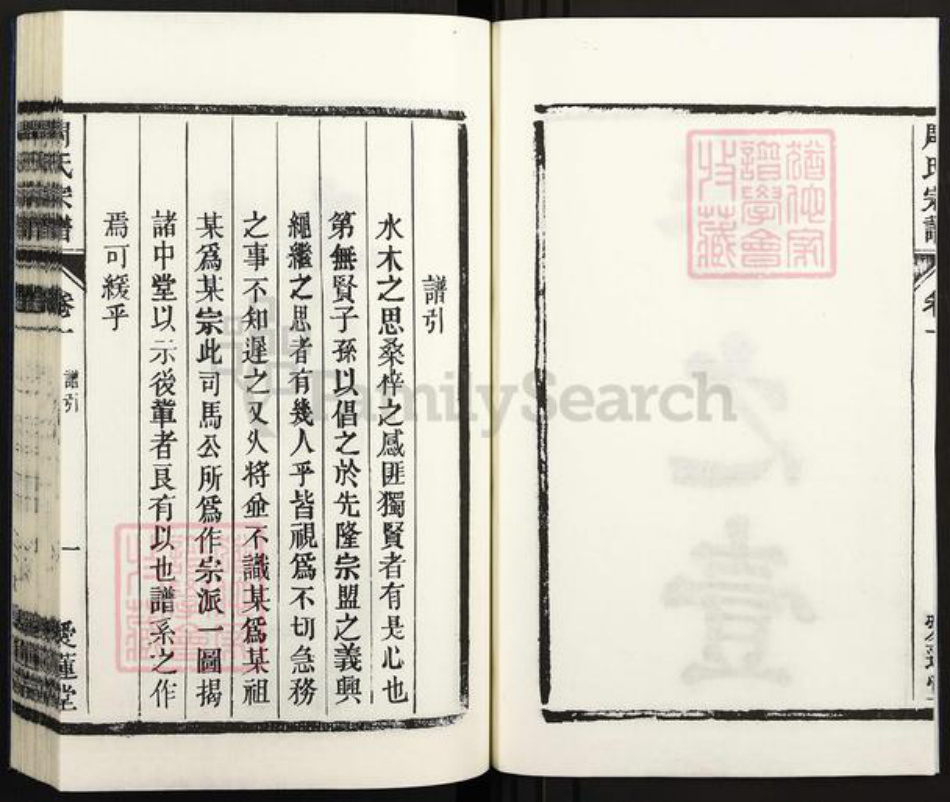 周氏宗譜
卷一
譜學會
收藏
譜引
水木之思桑梓之感匪獨賢者有是心也
第無賢子孫以倡之於先隆宗盟之義興
繩繼之思者有幾人乎皆視為不切急務
之事不知遲之又久將並不識某為某祖
某為某宗此司馬公所為作宗派一圖揭
諸中堂以示後輩者良有以也譜系之作
焉可緩乎
周氏宗譜
卷一
譜引
一
愛蓮堂
FamilySearch